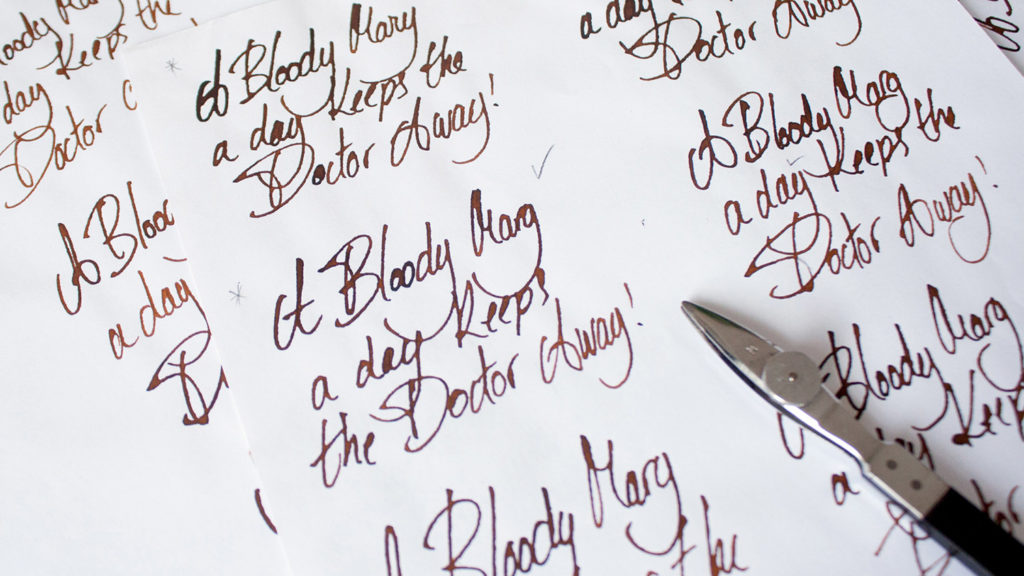 oody Mary
day Keeps the
Doctor
A Bloo
a day
A Bloody Mary
a day Keeps the
Doctor Away!
A Bloody Mary
a day Keeps
the Doctor Away!
A Bloody Mary
the
a day
Doctor Away
A Bloody Mary
a day Keeps the
Doctor Away!
Bloody Mary
a day Keep